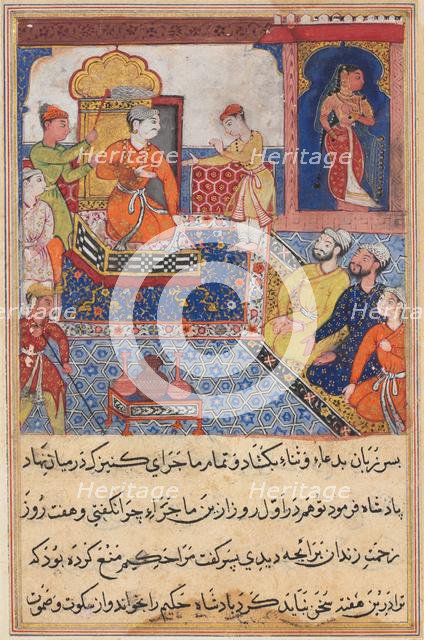 Heritage Heritage
Images Images
Heritage Heritage
پس زبان بدعاء و ثناء بکشاد و تمام ماجرای کنیزک در میان نهاد
پادشاه فرمود تو هم در اول روز ازین ماجراء چرا نگفتی و هفت روز
زحمت زندان برای چه دیدی پسر گفت مرا حکیم منع کرده بود که
ترا درین هفته سخن نباید کرد پادشاه حکیم را بخواند و از سکوت و صموت